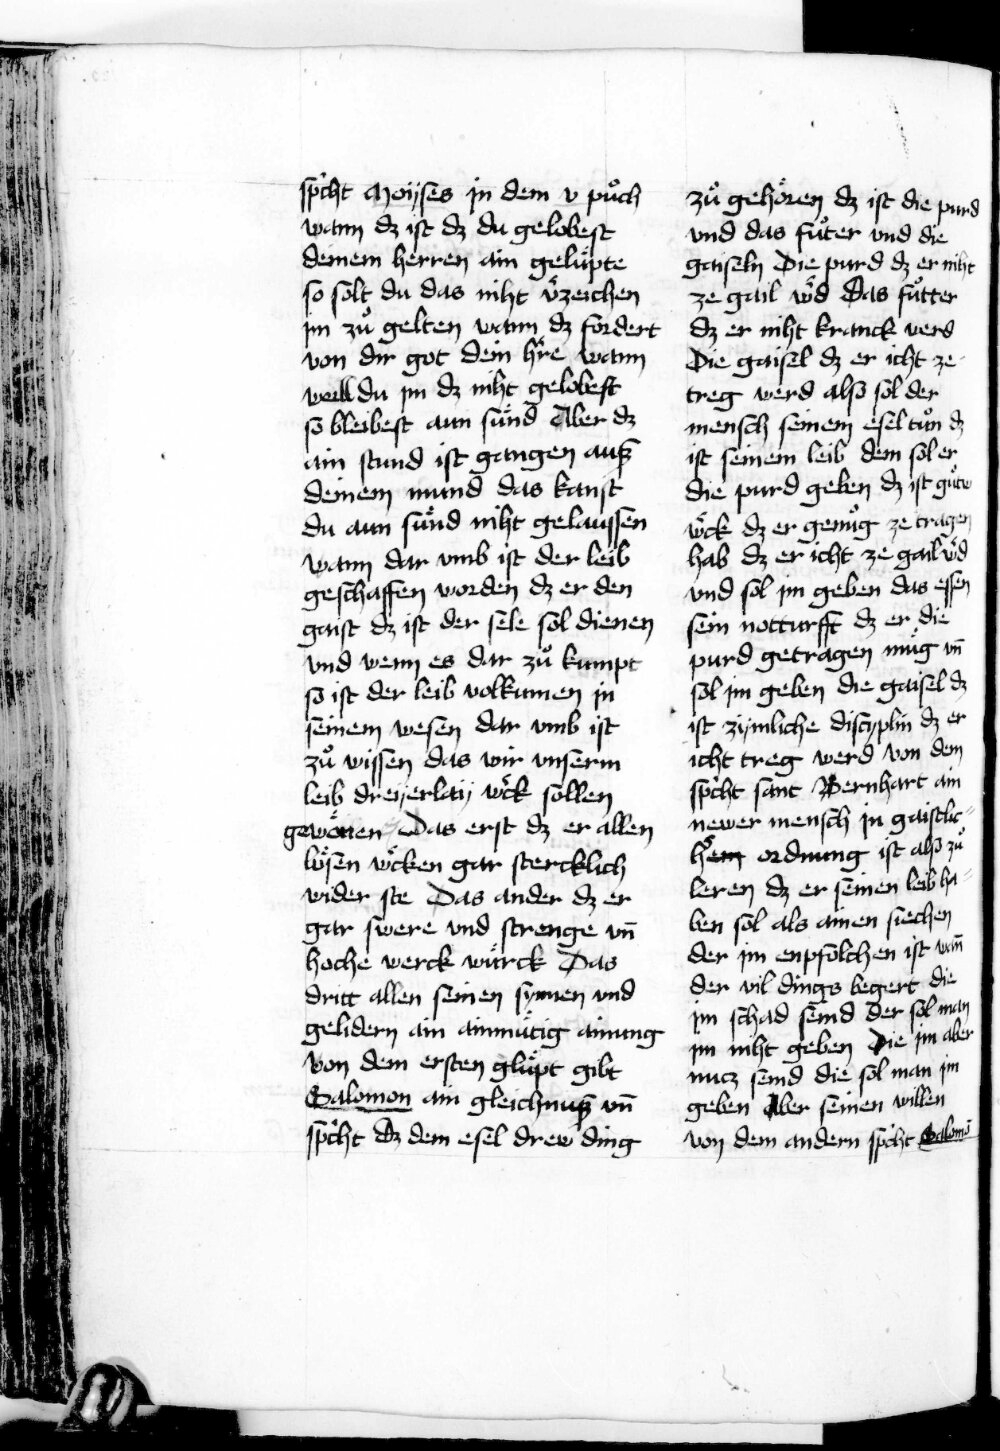 spͥcht Moÿses in dem v puͦch
wann dz ist dz du gelobest
deinem herren ain gelüpte
so solt du das niht v̈zeichen
im zuͦ gelten wann dz fordert
von dir got dein hͬre wann
well du im dz niht gelobest
so bleibest aun sünd Aber dz
ain stund ist gangen auß
deinem mund das kanst
du aun sünd niht gelaussen
wann dar vmb ist der leib
geschaffen worden dz er den
gaist dz ist der sele sol dienen
vnd wenn es dar zuͦ kumpt
so ist der leib volkumen in
seinem wesen dar vmb ist
zuͦ wissen das wir vnserm
leib dreÿerlaÿ wͤck sollen
gewönen Das erst dz er allen
bösen wͤcken gar stercklich
wider ste Das ander dz er
gar swere vnd strenge vn̄
hoche werck würck Das
dritt allen seinen synnen vnd
gelidern ain ainmütig ainung
von dem ersten glüpt gibt
Salomon ain gleichnuß vn̄
spͥcht Dz dem esel drew ding
zuͦ gehören dz ist die purd
vnd das fuͦter vnd die
gaiseln Die purd dz er niht
ze gail wͤd Das fuͦtter
dz er niht kranck werd
Die gaisel dz er icht ze
treg werd also sol der
mensch seinem esel tuͦn dz
ist seinem leib dem sol er
die purd geben dz ist guͦte
wͤck dz er genuͦg ze tragen
hab dz er icht ze gail wͤd
vnd sol im geben das essen
sein notturfft dz er die
purd getragen müg vn̄
sol im geben die gaisel dz
ist zÿmliche discyplin dz er
icht treg werd von dem
spͥcht sant Bernhart ain
newer mensch in gaistlic=
hem ordnung ist also zuͦ
leren dz er seinen leib ha=
ben sol als ainen siechen
der im enpfolchen ist wann̄
der vil dings begert die
im schad seind der sol man
im niht geben Die im aber
nucz seind die sol man im
geben Aber seinen willen
von dem andern spͥcht Salomō